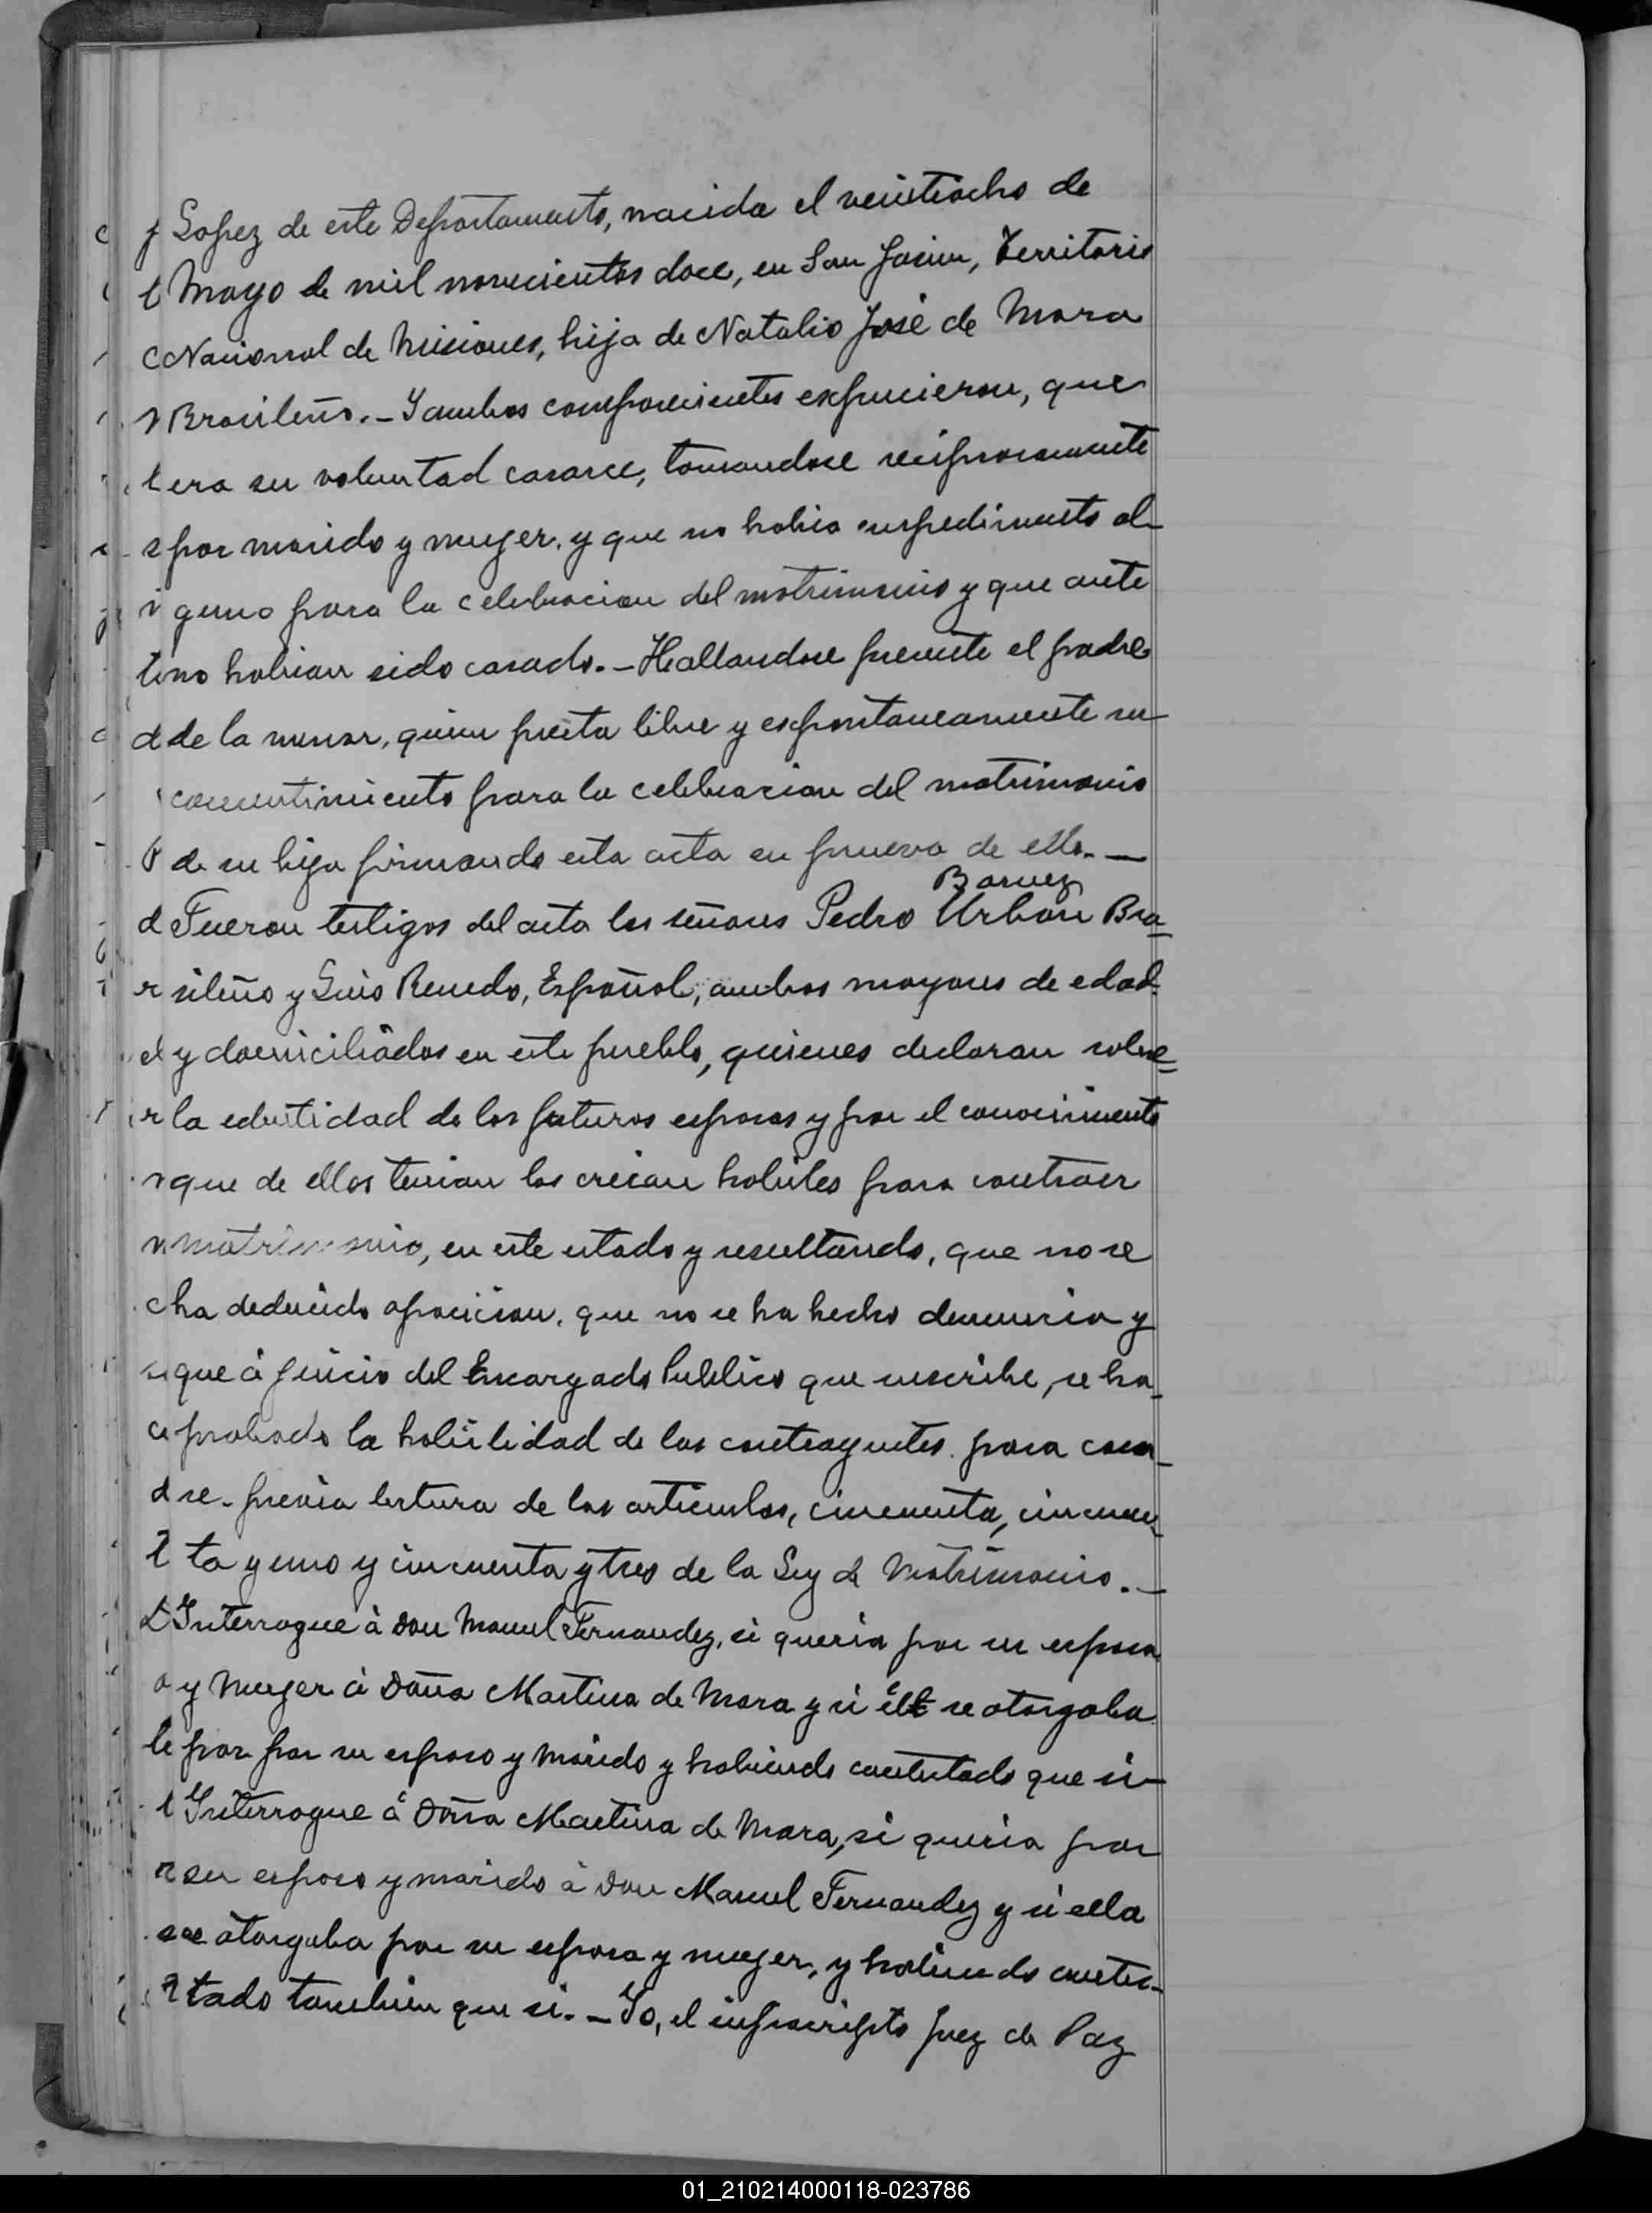 Lopez de este Departamento, nacida el veintiocho de
Mayo de mil novecientos doce, en San Javier, Territorio
Nacional de Misiones, hija de Natalio José de Mara
Brasileño.- Y ambos comparecientes expucieron, que
era su voluntad casarce, tomandose reciprocamente
por marido y muger, y que no habia empedimento al-
guno para la celebracion del matrimonio y que ante
no habian sido casado.- Hallandose presente el padre
de la menor, quien presta libre y espontaneamente su
concentimiento para la celebracion del matrimonio
de su hija firmando esta acta en prueva de ello.-
Barnez
Fueron testigos del acta los señores Pedro Urban Bra-
sileño y Luis Renedo, Español, ambos mayores de edad
y domiciliados en este pueblo, quienes decloran sobre
la edentidad de los futuros esposos y por el conocimiento
que de ellos tenian los creian habiles para contraer
matrimonio, en este estado y resultando, que no se
ha deducido oposicion, que no se ha hecho denuncia y
que á juicio del Encargado Publico que suscribe, se ha
probado la habilidad de los contrayentes para casar-
se- previa lectura de los articulos, cincuenta, cincuen-
ta y uno y cincuenta y tres de la Ley de Matrimonio.-
Interrogue à don Manuel Fernandez, si queria por su esposa
y Muger à Doña Martina de Mara y si él se otorgaba
por por su esposo y Marido y habiendo contestado que si-
Interrogue á Doña Martina de Mara, si queria por
su esposo y marido à don Manuel Fernandez y si ella
se otorgaba por su esposa y muger, y habiendo contes-
tado tambien que si.- Yo, el infrascripto Juez de Paz
01_210214000118-023786